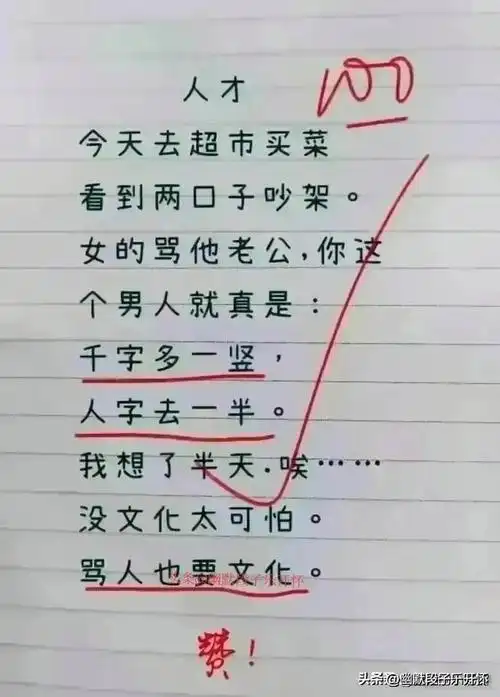 人才
100
今天去超市买菜
看到两口子吵架。
女的骂他老公,你这
个男人就真是:
千字多一竖,
人字去一半。
我想了半天.唉……
没文化太可怕。
骂人也要文化。
赞!
头条@幽默段子乐开怀